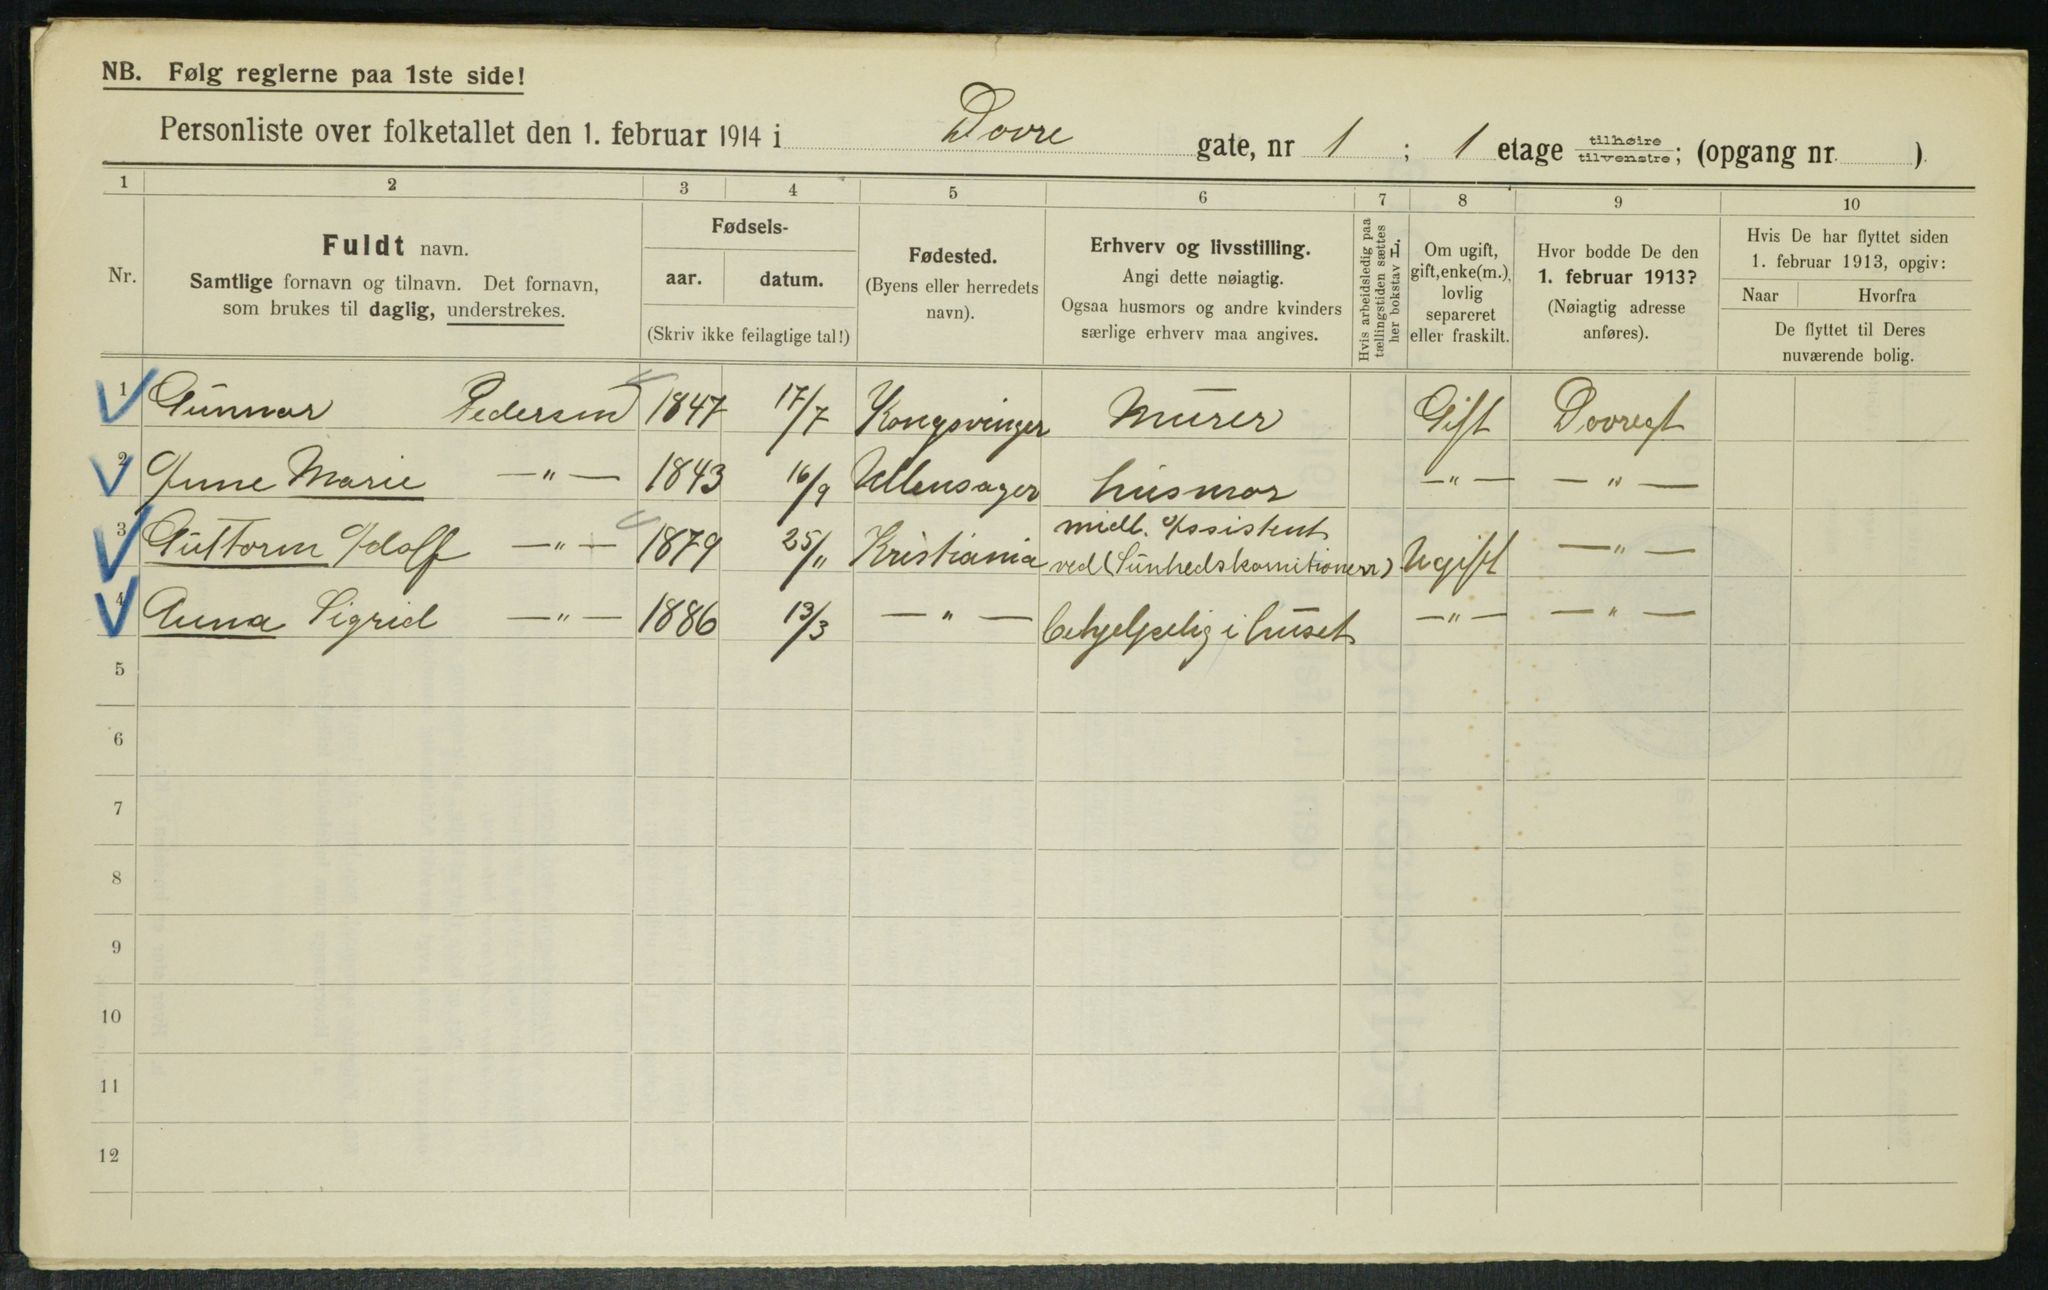 NB. Følg reglerne paa 1ste side!
Personliste over folketallet den 1. februar 1914 i Dovre gate, nr 1 ; 1 etage tilhøire tilvenstre; (opgang nr. )
1 2 3 4 5 6 7 8 9 10
Nr.
Fuldt navn.
Samtlige fornavn og tilnavn. Det fornavn,
som brukes til daglig, understrekes.
Fødsels-
aar. datum.
(Skriv ikke feilagtige tal!)
Fødested.
(Byens eller herredets
navn).
Erhverv og livsstilling.
Angi dette nøiagtig.
Ogsaa husmors og andre kvinders
særlige erhverv maa angives.
Hvis arbeidsledig paa
tællingstiden sættes
her bokstav L
Om ugift,
gift, enke(m.),
lovlig
separeret
eller fraskilt.
Hvor bodde De den
1. februar 1913?
(Nøiagtig adresse
anføres).
Hvis De har flyttet siden
1. februar 1913, opgiv:
Naar Hvorfra
De flyttet til Deres
nuværende bolig.
1 Gunnar Pedersen 1847 17/7 Kongsvinger Murer Gift Dovregt
2 Anne Marie —"— 1843 16/9 Ullensager husmor —"— —"—
3 Guttorm Adolf —"— 1879 25/11 Kristiania midl. Assistent
ved (Sunhedskomitionen) Ugift —"—
4 Anna Sigrid —"— 1886 13/3 —"— behjelpelig i huset —"— —"—
5
6
7
8
9
10
11
12